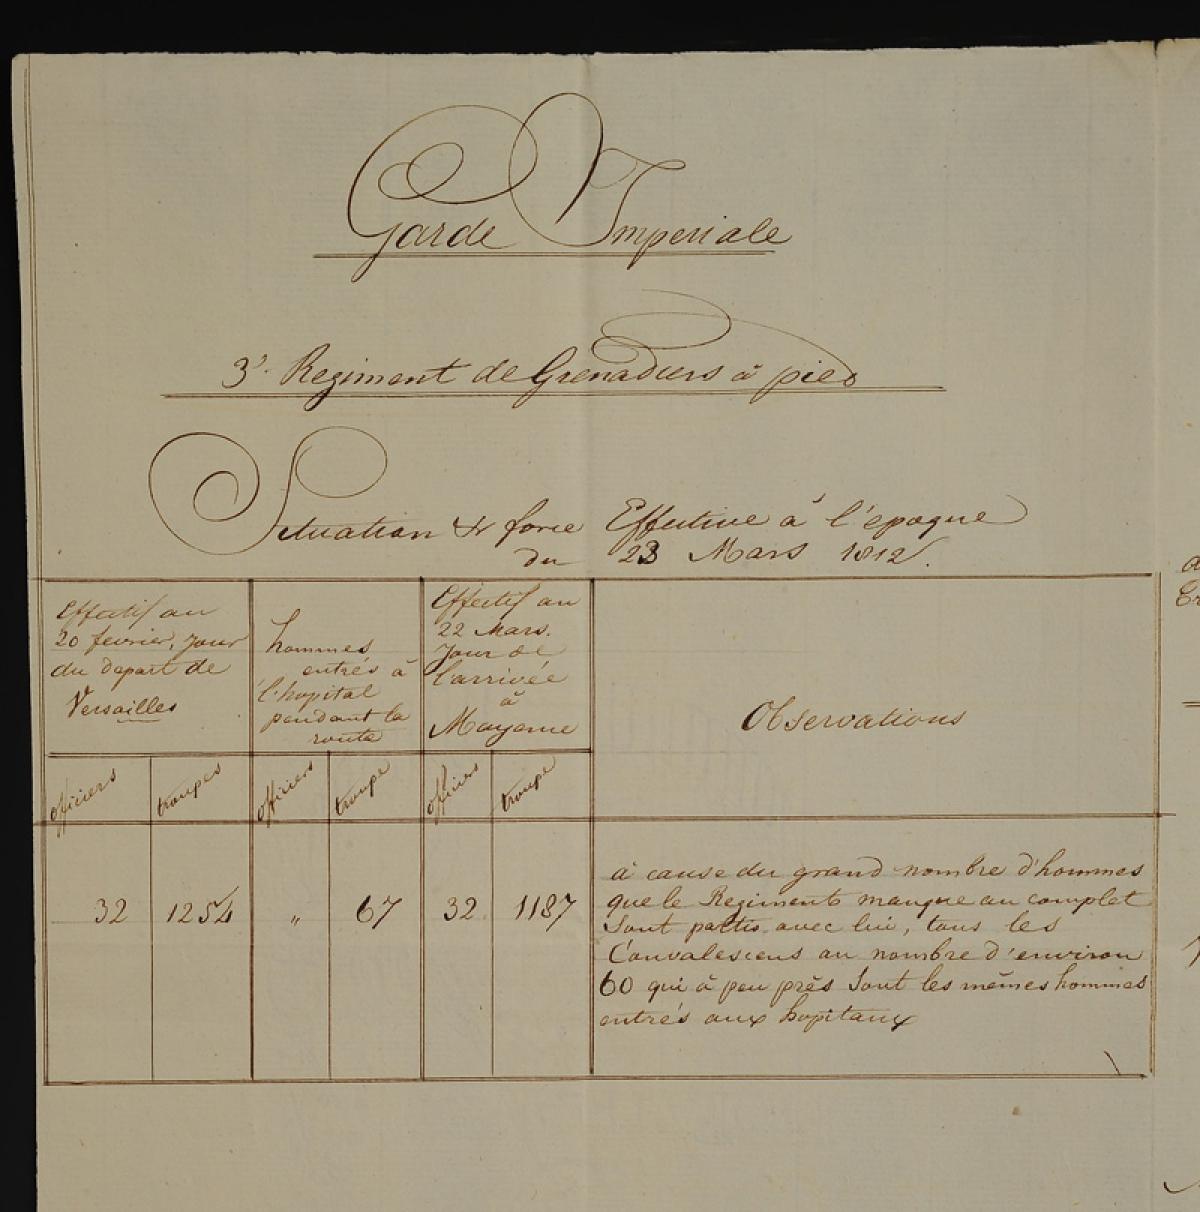 Garde Imperiale
3e. Regiment de Grenadiers à pied
Situation & force Effective à l'epoque
du 23 Mars 1812.
Effectif au
20 fevrier, jour
du depart de
Versailles
hommes
entrés à
l'hopital
pendant la
route
Effectif au
22 Mars.
Jour de
l'arrivée
à
Mayence
Observations
officiers
troupes
officiers
troupe
officiers
troupe
32
1254
"
67
32
1187
à cause du grand nombre d'hommes
que le Regiment manque au complet
Sont partis avec lui, tous les
Convalescens au nombre d'environ
60 qui à peu près Sont les mêmes hommes
entrés aux hopitaux